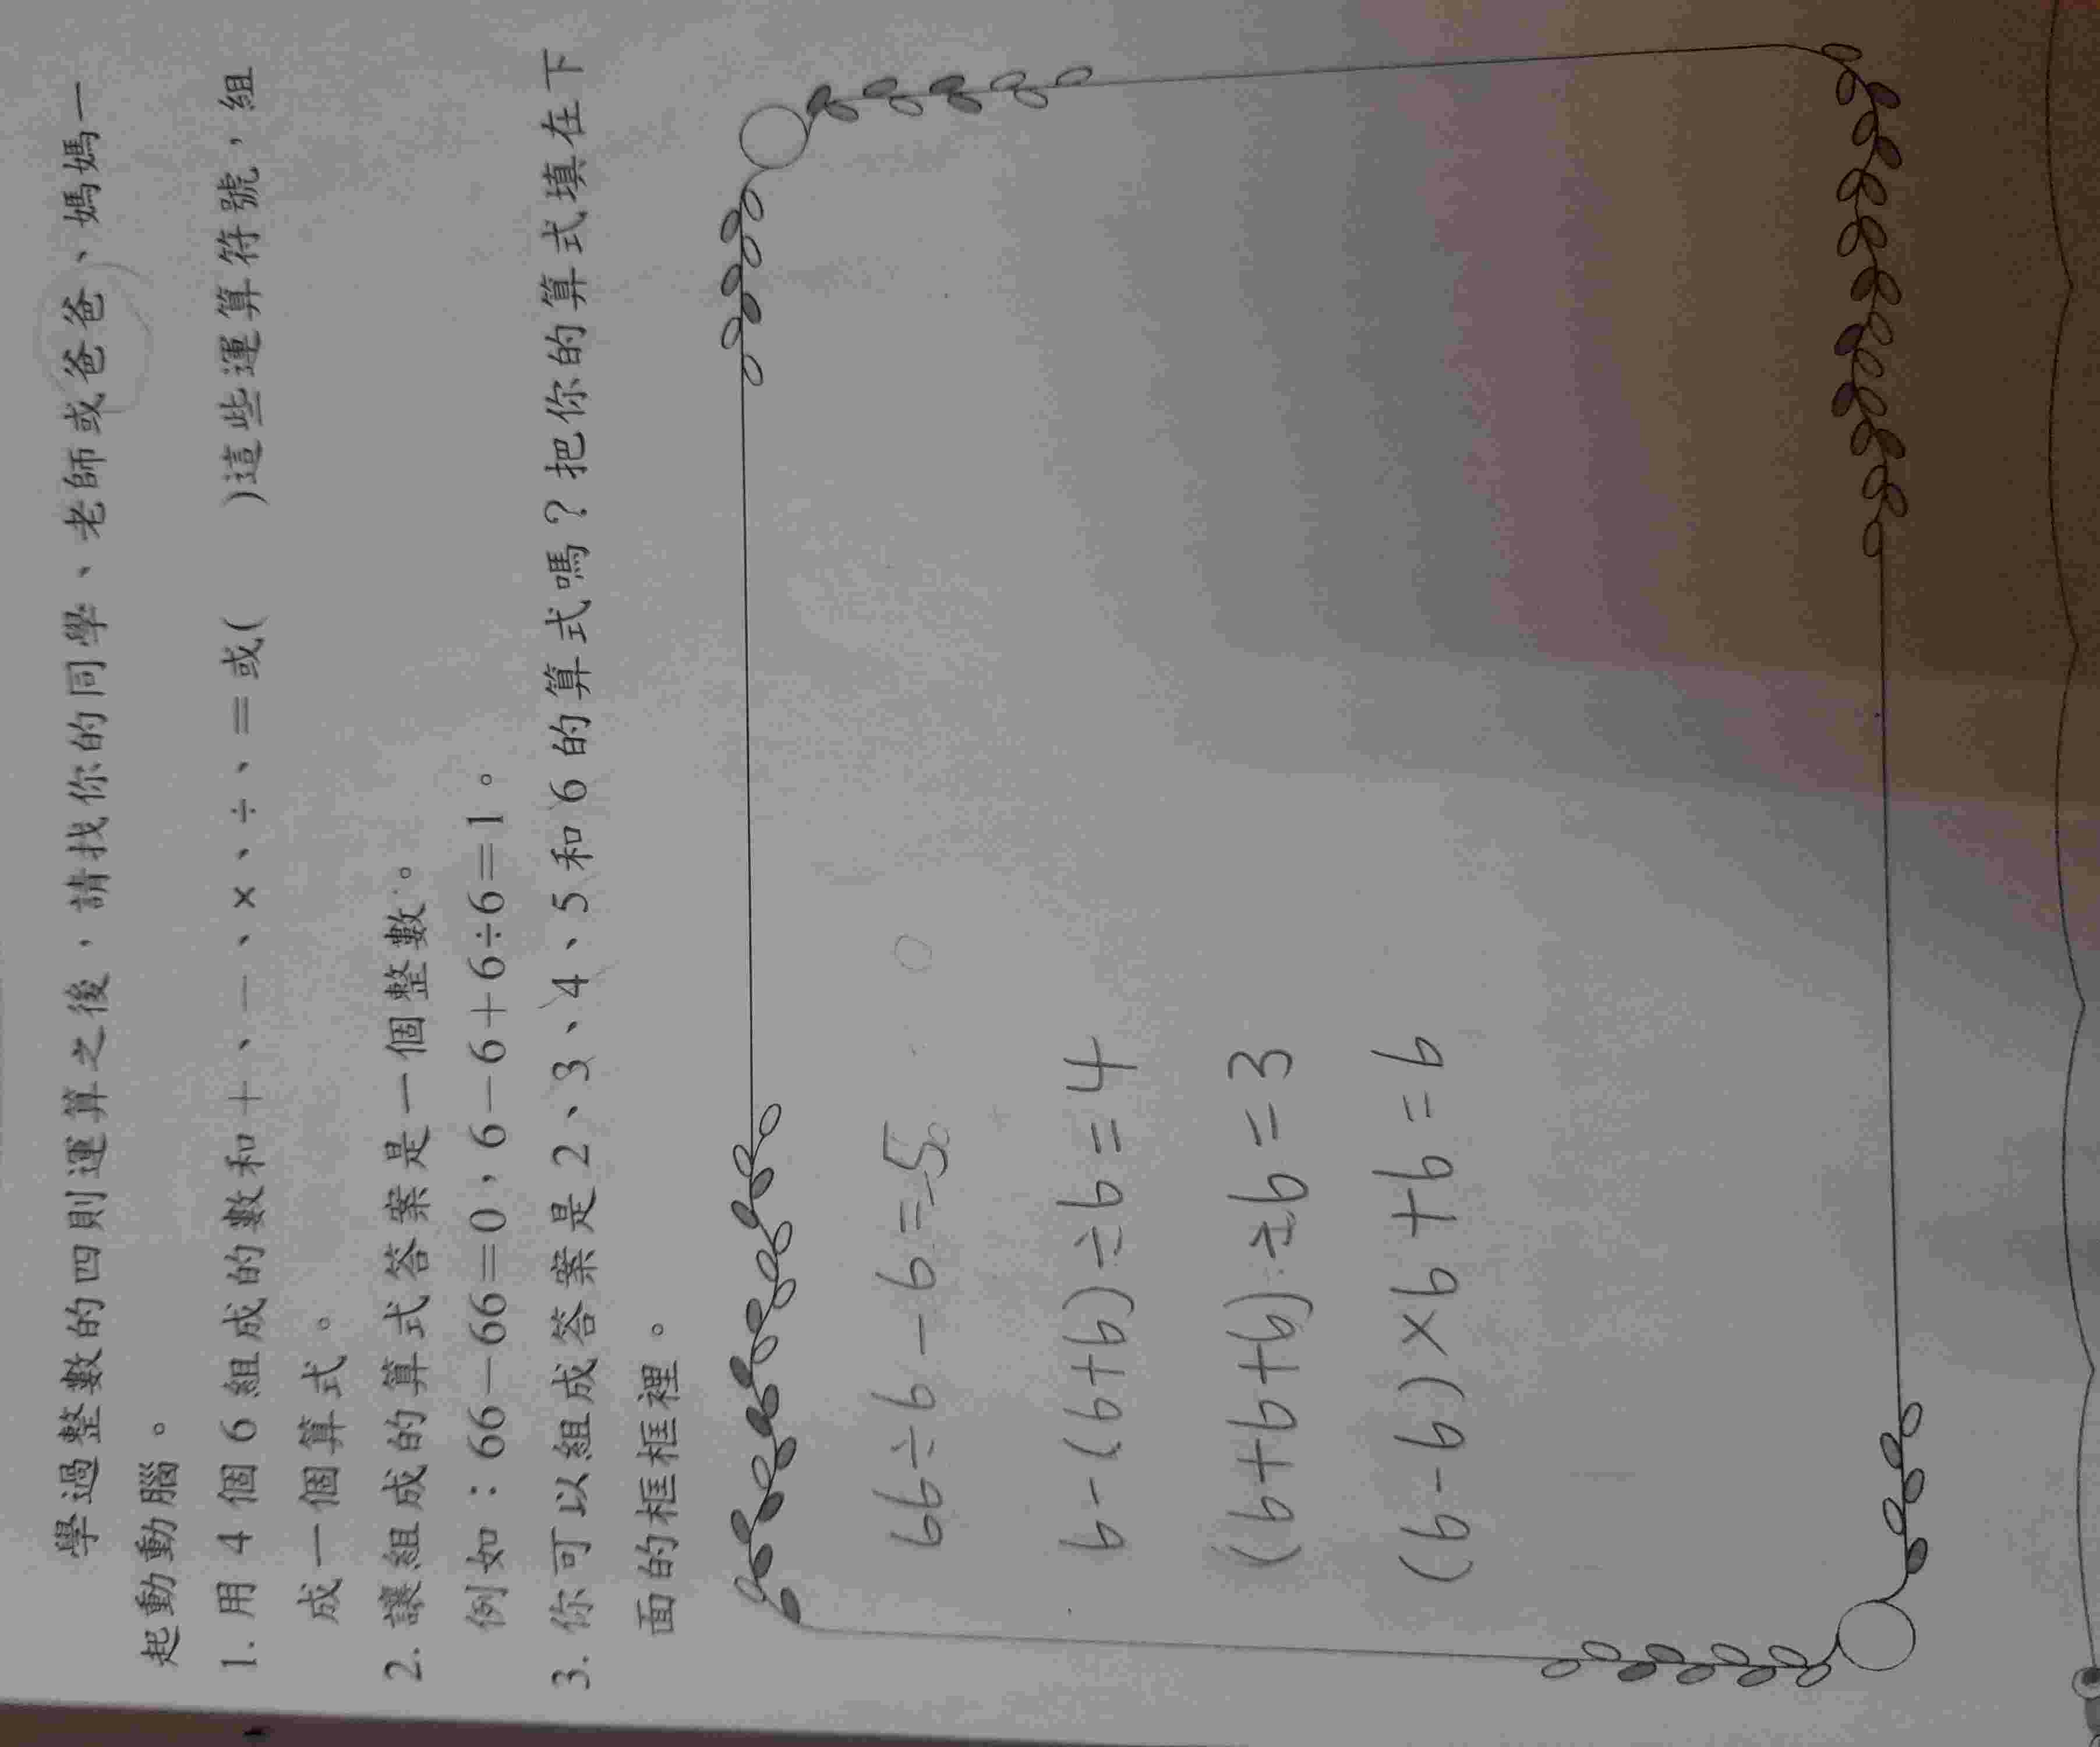 學過整數的四則運算之後,請找你的同學、老師或爸爸、媽媽一
起動動腦。
1. 用 4 個 6 組成的數和＋、－、×、÷、＝或(　　)這些運算符號,組
成一個算式。
2. 讓組成的算式答案是一個整數。
例如：66－66＝0,6－6＋6÷6＝1。
3. 你可以組成答案是 2、3、4、5 和 6 的算式嗎？把你的算式填在下
面的框框裡。
66÷6－6＝5
6－(6＋6)÷6＝4
(6＋6＋6)÷6＝3
(6－6)×6＋6＝6